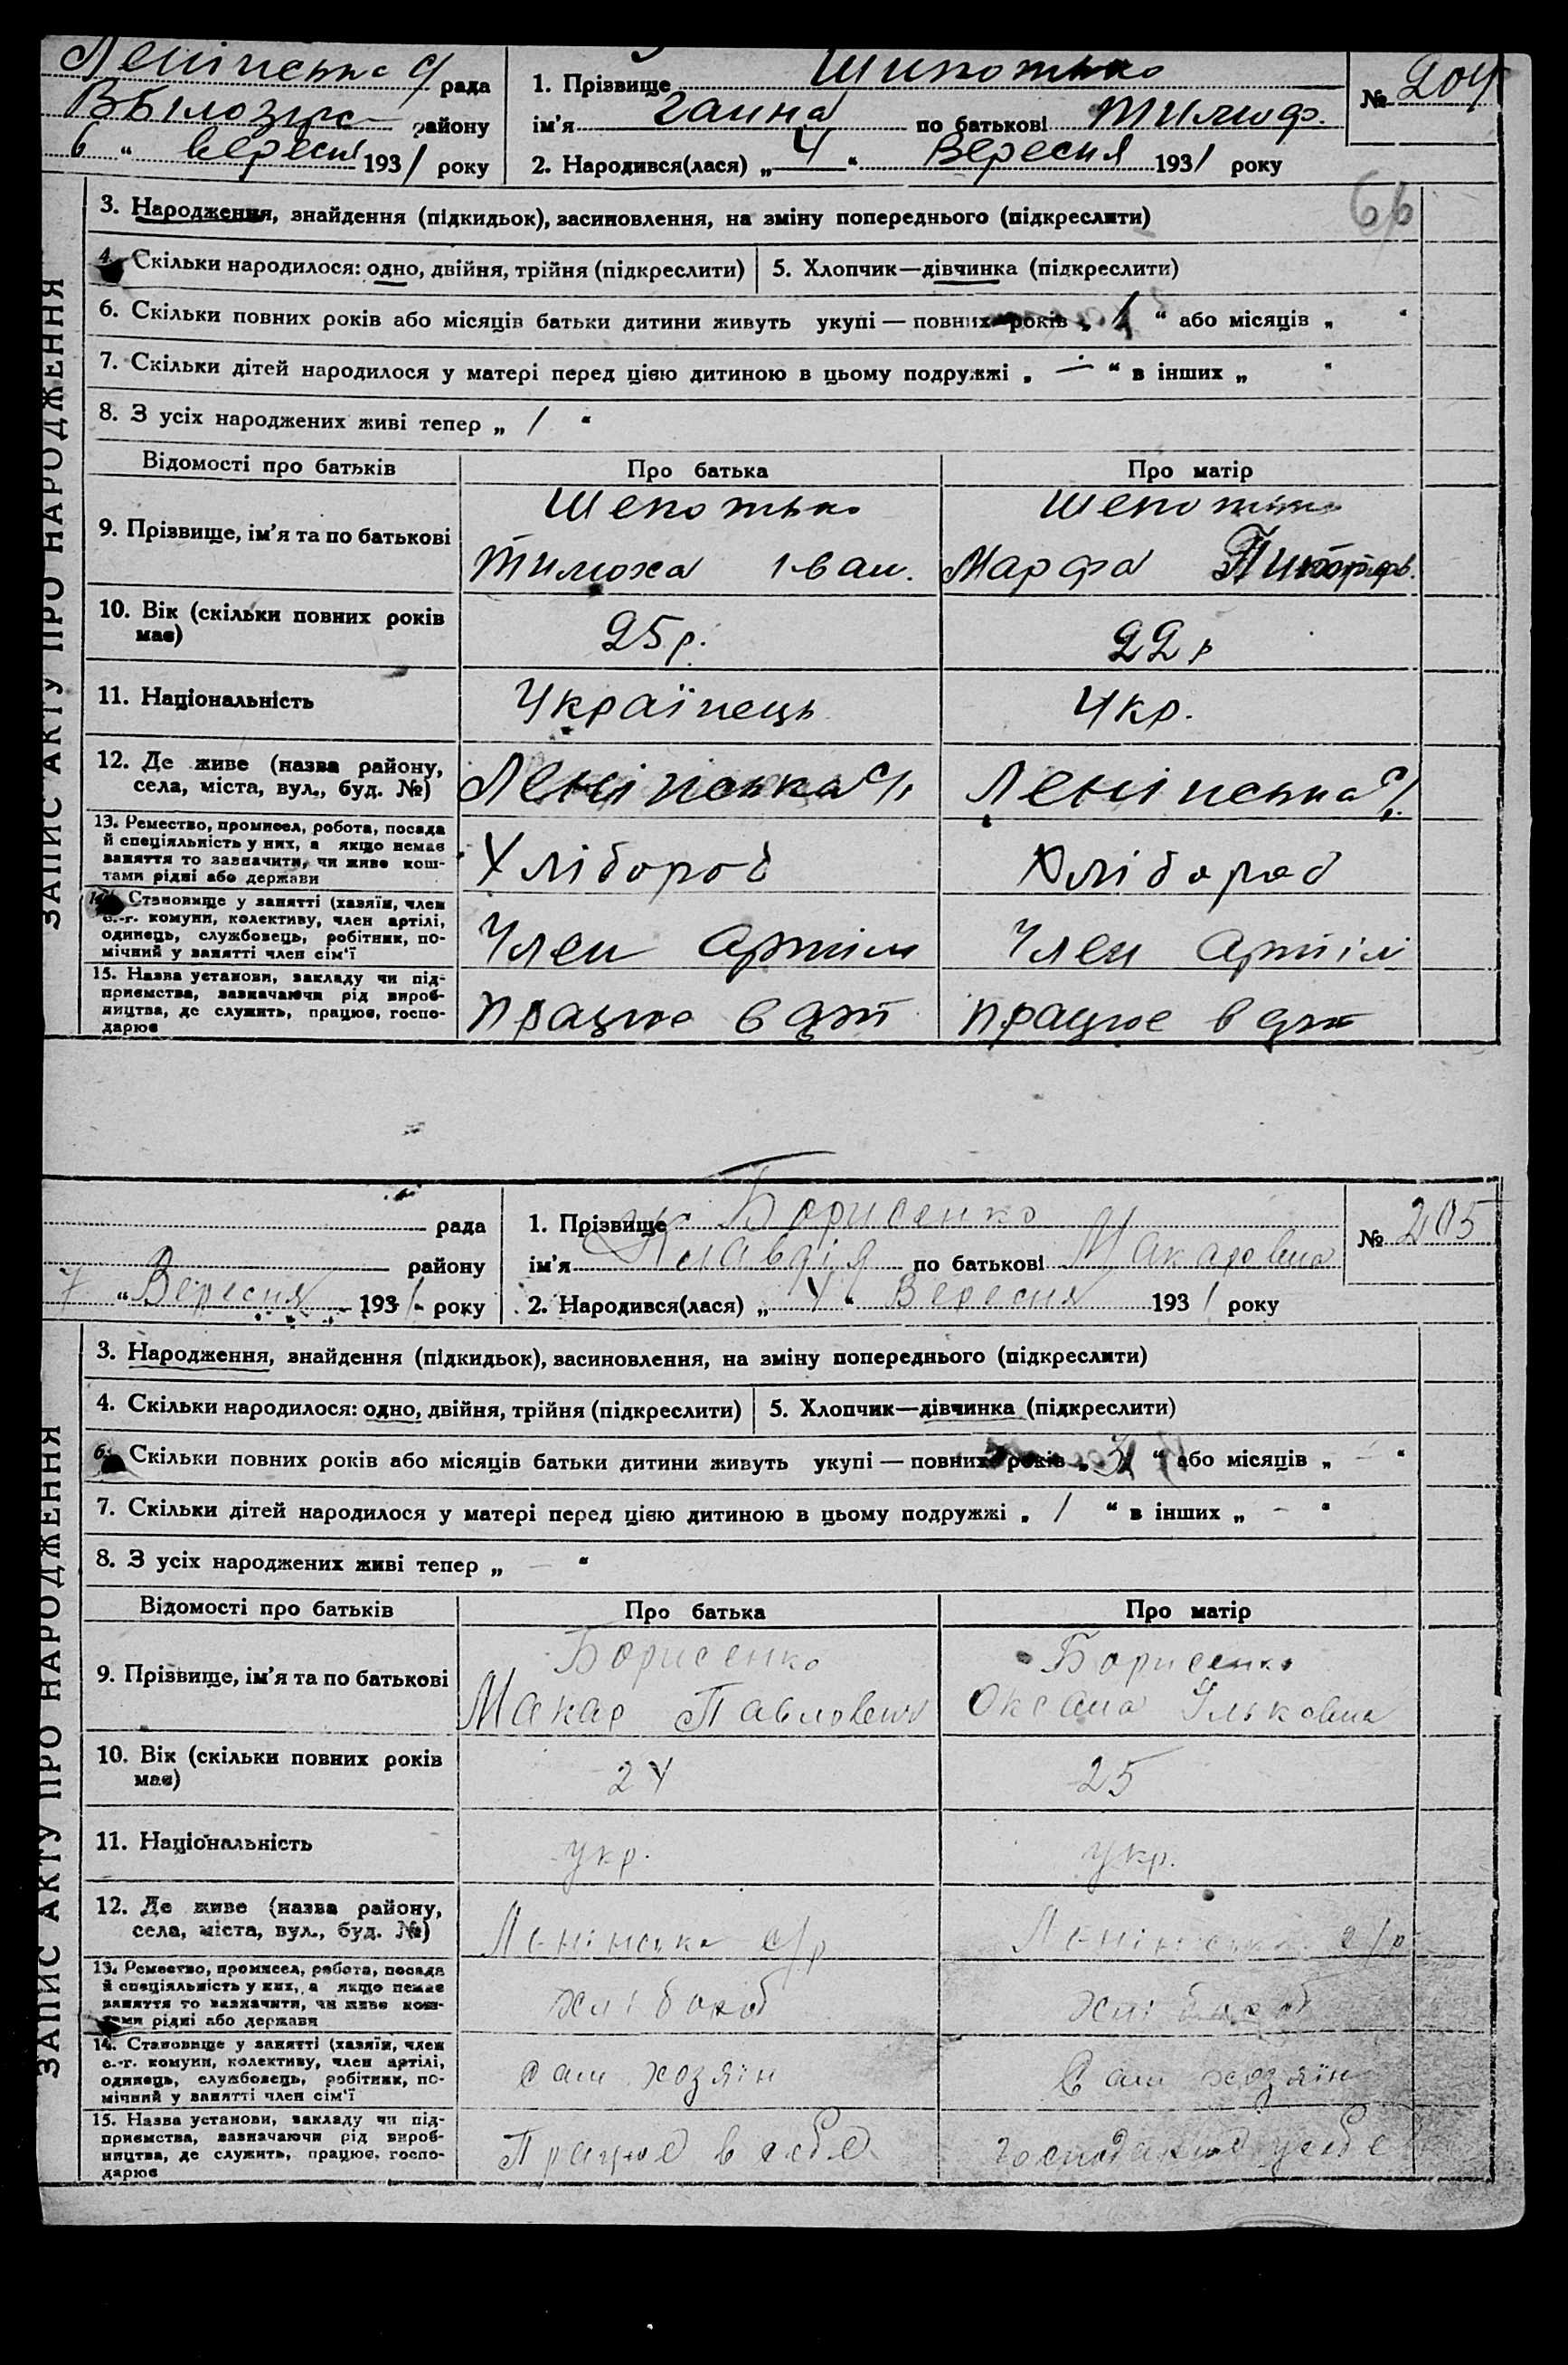 Ленінська с/ рада
В Білозірс району
6 " вересня 1931 року
1. Прізвище Шипотько
ім'я Ганна по батькові Тимоф.
2. Народився(лася) „ 4 " Вересня 1931 року
№ 204
6р
ЗАПИС АКТУ ПРО НАРОДЖЕННЯ
3. Народження, знайдення (підкидьок), засиновлення, на зміну попереднього (підкреслити)
4. Скільки народилося: одно, двійня, трійня (підкреслити) 5. Хлопчик—дівчинка (підкреслити)
6. Скільки повних років або місяців батьки дитини живуть укупі — повних років „ 1 " або місяців „ "
7. Скільки дітей народилося у матері перед цією дитиною в цьому подружжі „ — " в інших „ "
8. З усіх народжених живі тепер „ 1 "
Відомості про батьків Про батька Про матір
9. Прізвище, ім'я та по батькові
Шепотько
Тимоха Іван.
Шепотько
Марфа
10. Вік (скільки повних років
має)
25р. 22р
11. Національність Українець Укр.
12. Де живе (назва району,
села, міста, вул., буд. №)
Ленінська с/ Ленінська с/
13. Ремество, промисел, робота, посада
й спеціяльність у них, а якщо немає
заняття то зазначити, чи живе кош-
тами рідні або держави
Хлібороб Хлібороб
14. Становище у занятті (хазяїн, член
с.-г. комуни, колективу, член артілі,
одинець, службовець, робітник, по-
мічний у занятті член сім'ї
Член артіли Член артілі
15. Назва установи, закладу чи під-
приємства, зазначаючи рід вироб-
ництва, де служить, працює, госпо-
дарює
працює в арт працює в арт
рада
району
7 " Вересня 1931 року
1. Прізвище Борисенко
ім'я Клавдія по батькові Макаровна
2. Народився(лася) „ 4 " Вересня 1931 року
№ 205
ЗАПИС АКТУ ПРО НАРОДЖЕННЯ
3. Народження, знайдення (підкидьок), засиновлення, на зміну попереднього (підкреслити)
4. Скільки народилося: одно, двійня, трійня (підкреслити) 5. Хлопчик—дівчинка (підкреслити)
6. Скільки повних років або місяців батьки дитини живуть укупі — повних років „ 3 " або місяців „ — "
7. Скільки дітей народилося у матері перед цією дитиною в цьому подружжі „ 1 " в інших „ – "
8. З усіх народжених живі тепер „ — "
Відомості про батьків Про батька Про матір
9. Прізвище, ім'я та по батькові
Борисенко
Макар Павлович
Борисенко
Оксана Ільковна
10. Вік (скільки повних років
має)
24 25
11. Національність укр. укр.
12. Де живе (назва району,
села, міста, вул., буд. №)
Ленінська с/р Ленінська с/р
13. Ремество, промисел, робота, посада
й спеціяльність у них, а якщо немає
заняття то зазначити, чи живе кош-
тами рідні або держави
хлібороб хлібороб
14. Становище у занятті (хазяїн, член
с.-г. комуни, колективу, член артілі,
одинець, службовець, робітник, по-
мічний у занятті член сім'ї
сам хозяїн Сам хозяїн
15. Назва установи, закладу чи під-
приємства, зазначаючи рід вироб-
ництва, де служить, працює, госпо-
дарює
Працює в себе господарює у себе